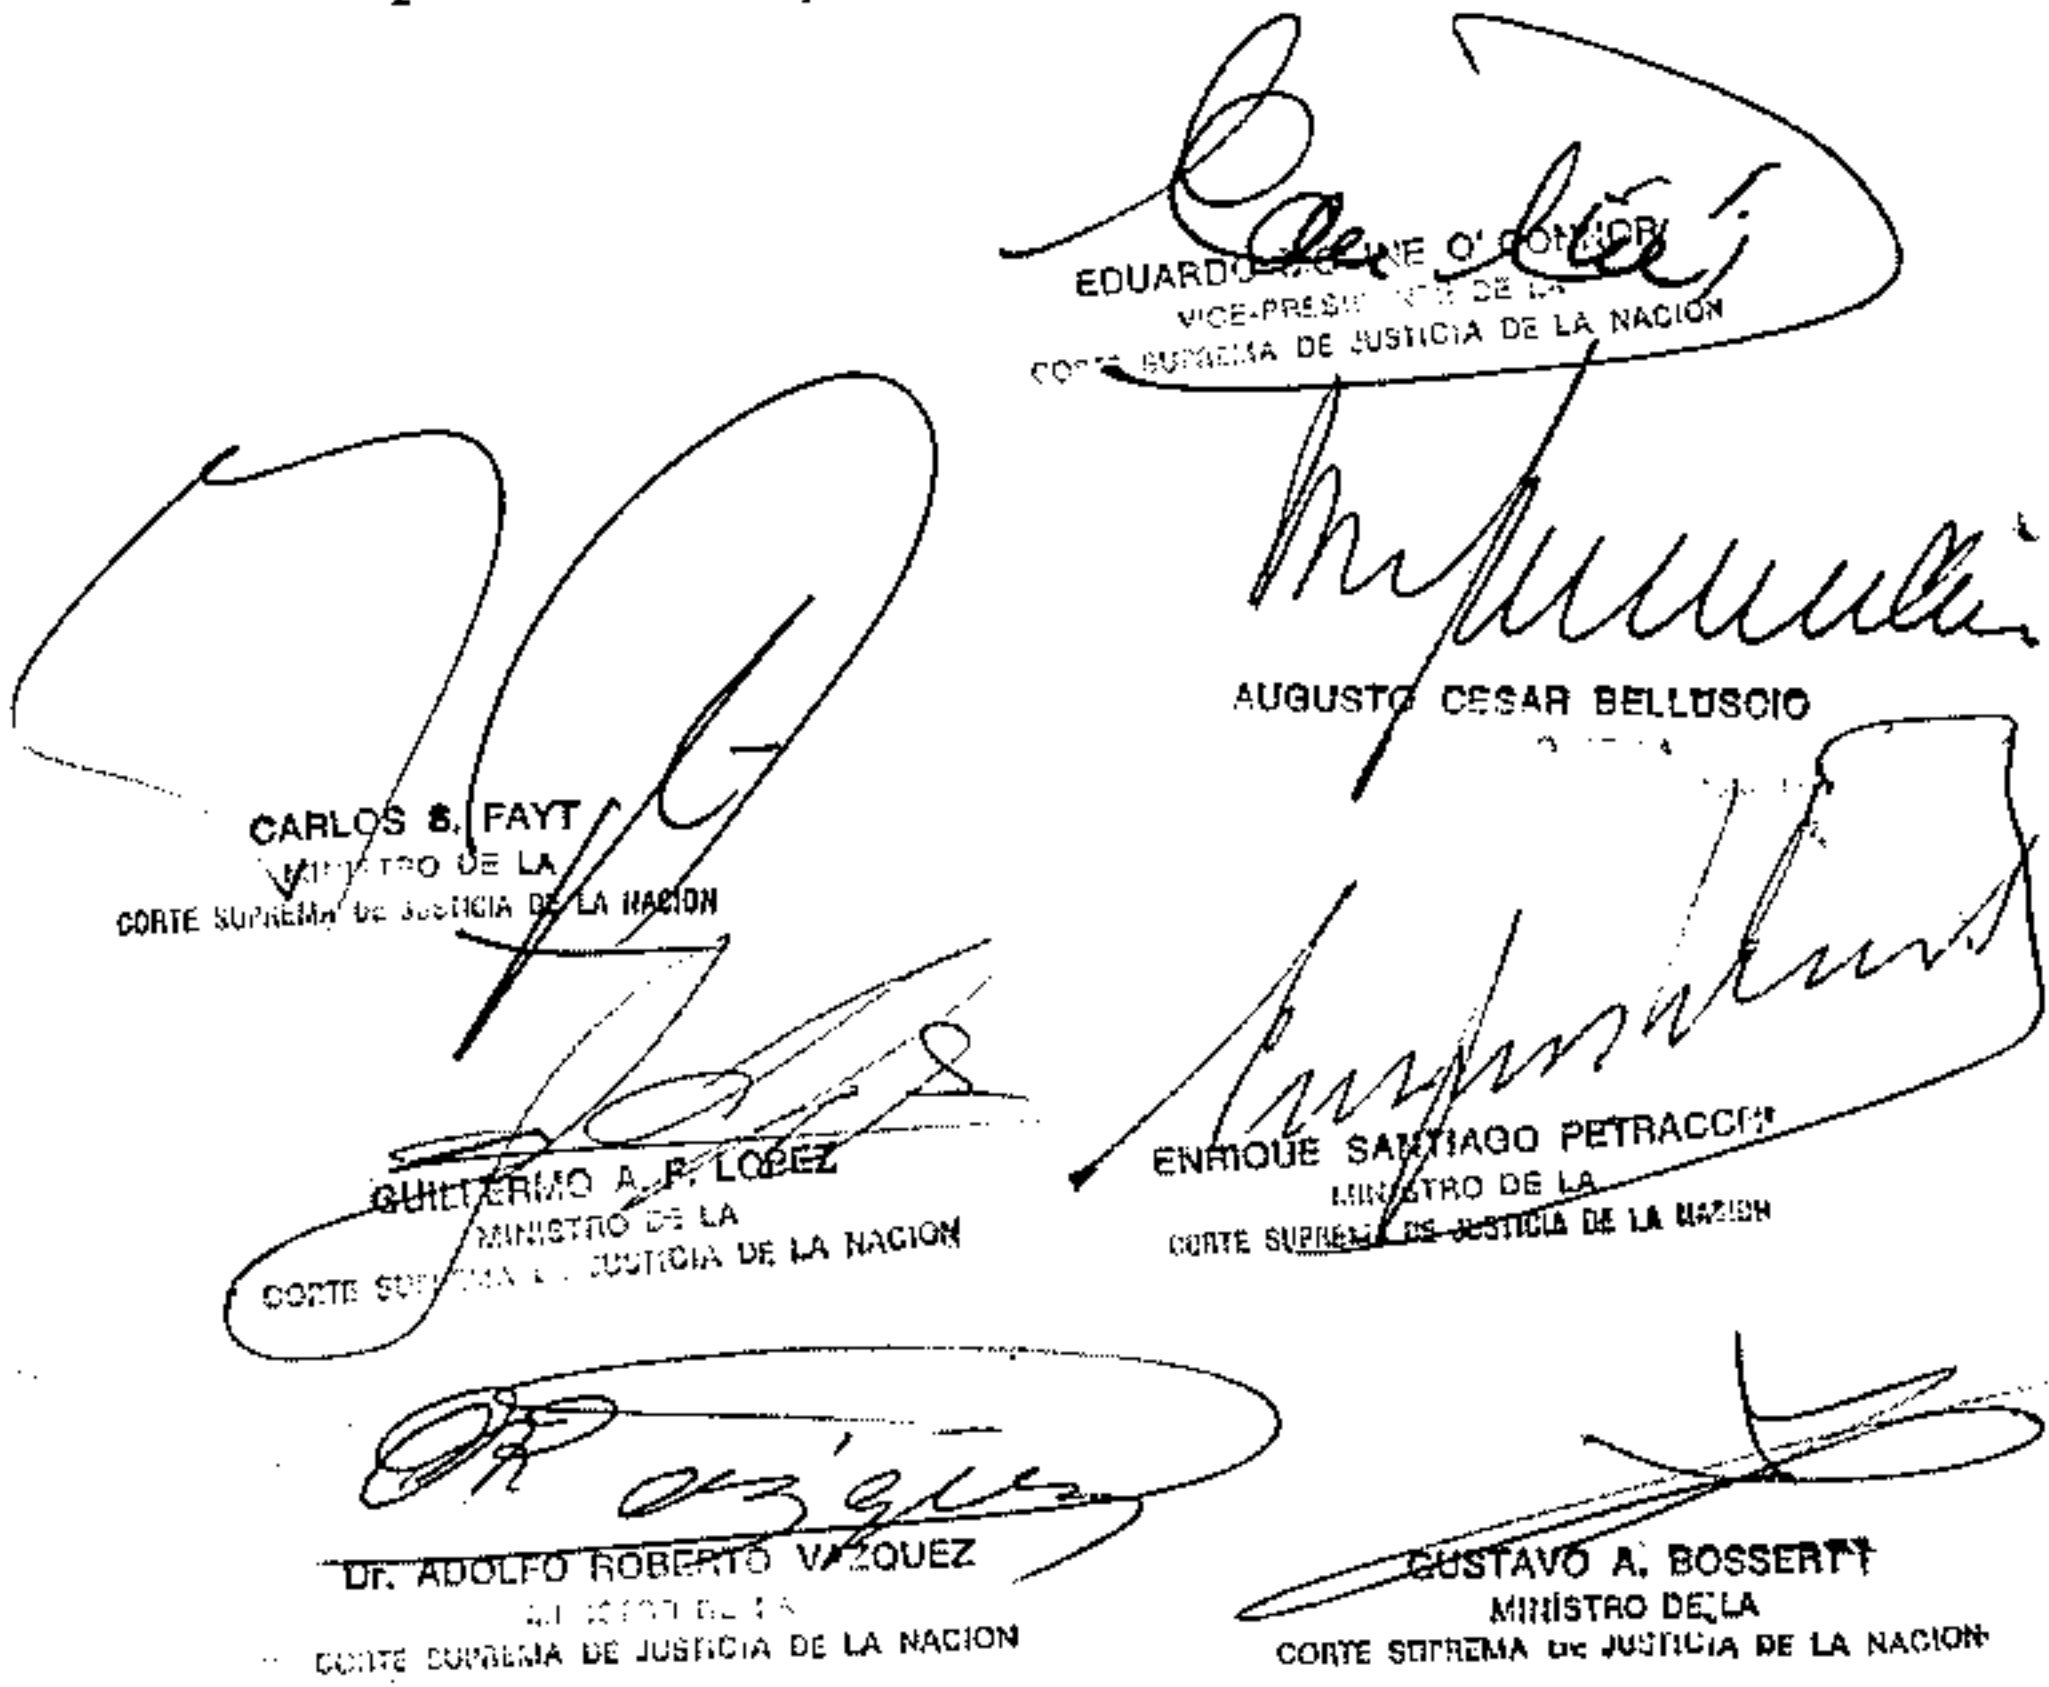 EDUARDO MOLINE O' CONNOR
VICE-PRESIDENTE DE LA
CORTE SUPREMA DE JUSTICIA DE LA NACION
AUGUSTO CESAR BELLUSCIO
CARLOS S. FAYT
MINISTRO DE LA
CORTE SUPREMA DE JUSTICIA DE LA NACION
ENRIQUE SANTIAGO PETRACCHI
MINISTRO DE LA
CORTE SUPREMA DE JUSTICIA DE LA NACION
GUILLERMO A. F. LOPEZ
MINISTRO DE LA
CORTE SUPREMA DE JUSTICIA DE LA NACION
Dr. ADOLFO ROBERTO VAZQUEZ
MINISTRO DE LA
CORTE SUPREMA DE JUSTICIA DE LA NACION
GUSTAVO A. BOSSERT
MINISTRO DE LA
CORTE SUPREMA DE JUSTICIA DE LA NACION